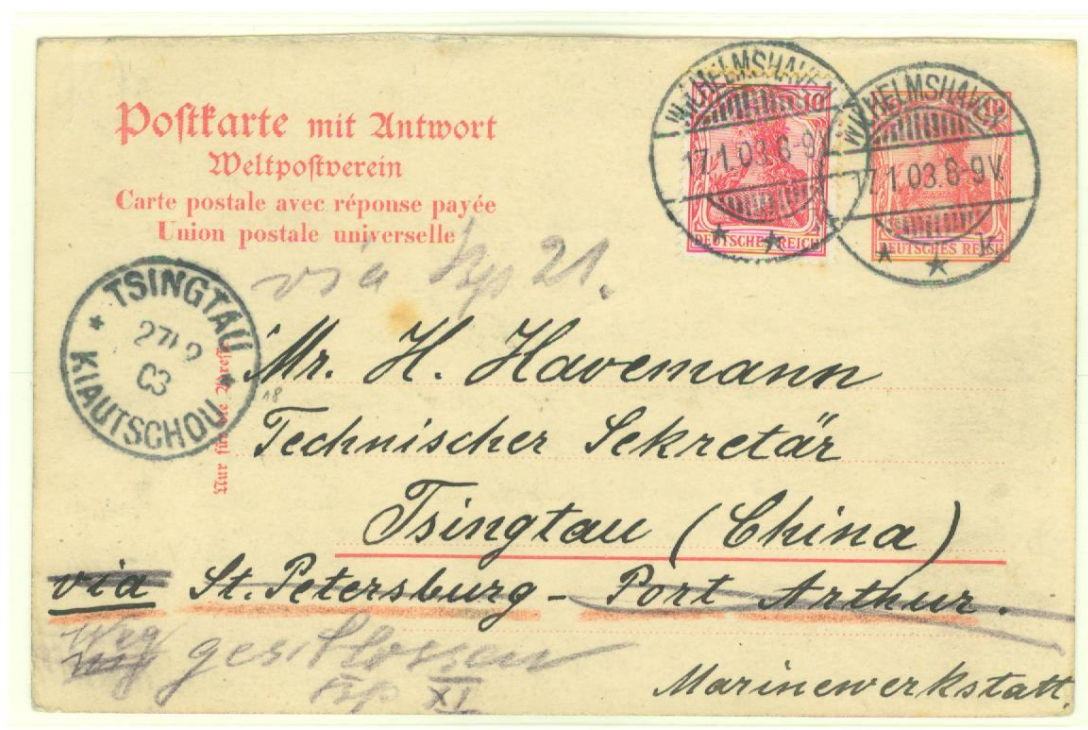 Postkarte mit Antwort
Weltpostverein
Carte postale avec réponse payée
Union postale universelle
WILHELMSHAVEN
17.1.03.8-9V.
10
DEUTSCHES REICH
WILHELMSHAVEN
17.1.03.8-9V.
DEUTSCHES REICH
via 21.
TSINGTAU
03
KIAUTSCHOU
Nur für die Adresse
18
Mr. H. Havemann
Technischer Sekretär
Tsingtau (China)
via St. Petersburg - Port Arthur.
Weg geschlossen
XI
Marinewerkstatt.